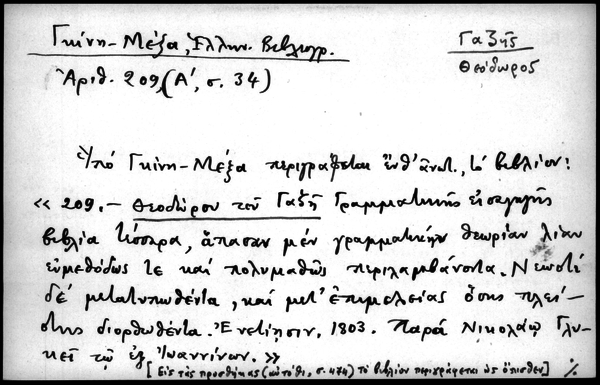 Γκίνη-Μέξα, Ἑλλην. Βιβλιογρ.
Γαζῆς
Θεόδωρος
Ἀριθ. 209, (Α΄, σ. 34)
Ὑπό Γκίνη-Μέξα περιγράφεται ἔνθ' ἀνωτ., τό βιβλίον:
« 209. – Θεοδώρου τοῦ Γαζῆ Γραμματικῆς εἰσαγωγῆς
βιβλία τέσσαρα, ἅπασαν μέν γραμματικήν θεωρίαν λίαν
εὐμεθόδως τε καί πολυμαθῶς περιλαμβάνοντα. Νεωστί
δέ μετατυπωθέντα, καί μετ' ἐπιμελείας ὅσης πλεί-
στης διορθωθέντα. Ἐνετίησιν, 1803. Παρά Νικολάῳ Γλυ-
κεῖ τῷ ἐξ Ἰωαννίνων. »
[ Εἰς τάς προσθήκας (αὐτόθι, σ. 474) τό βιβλίον περιγράφεται ὡς ὄπισθεν ] ./.